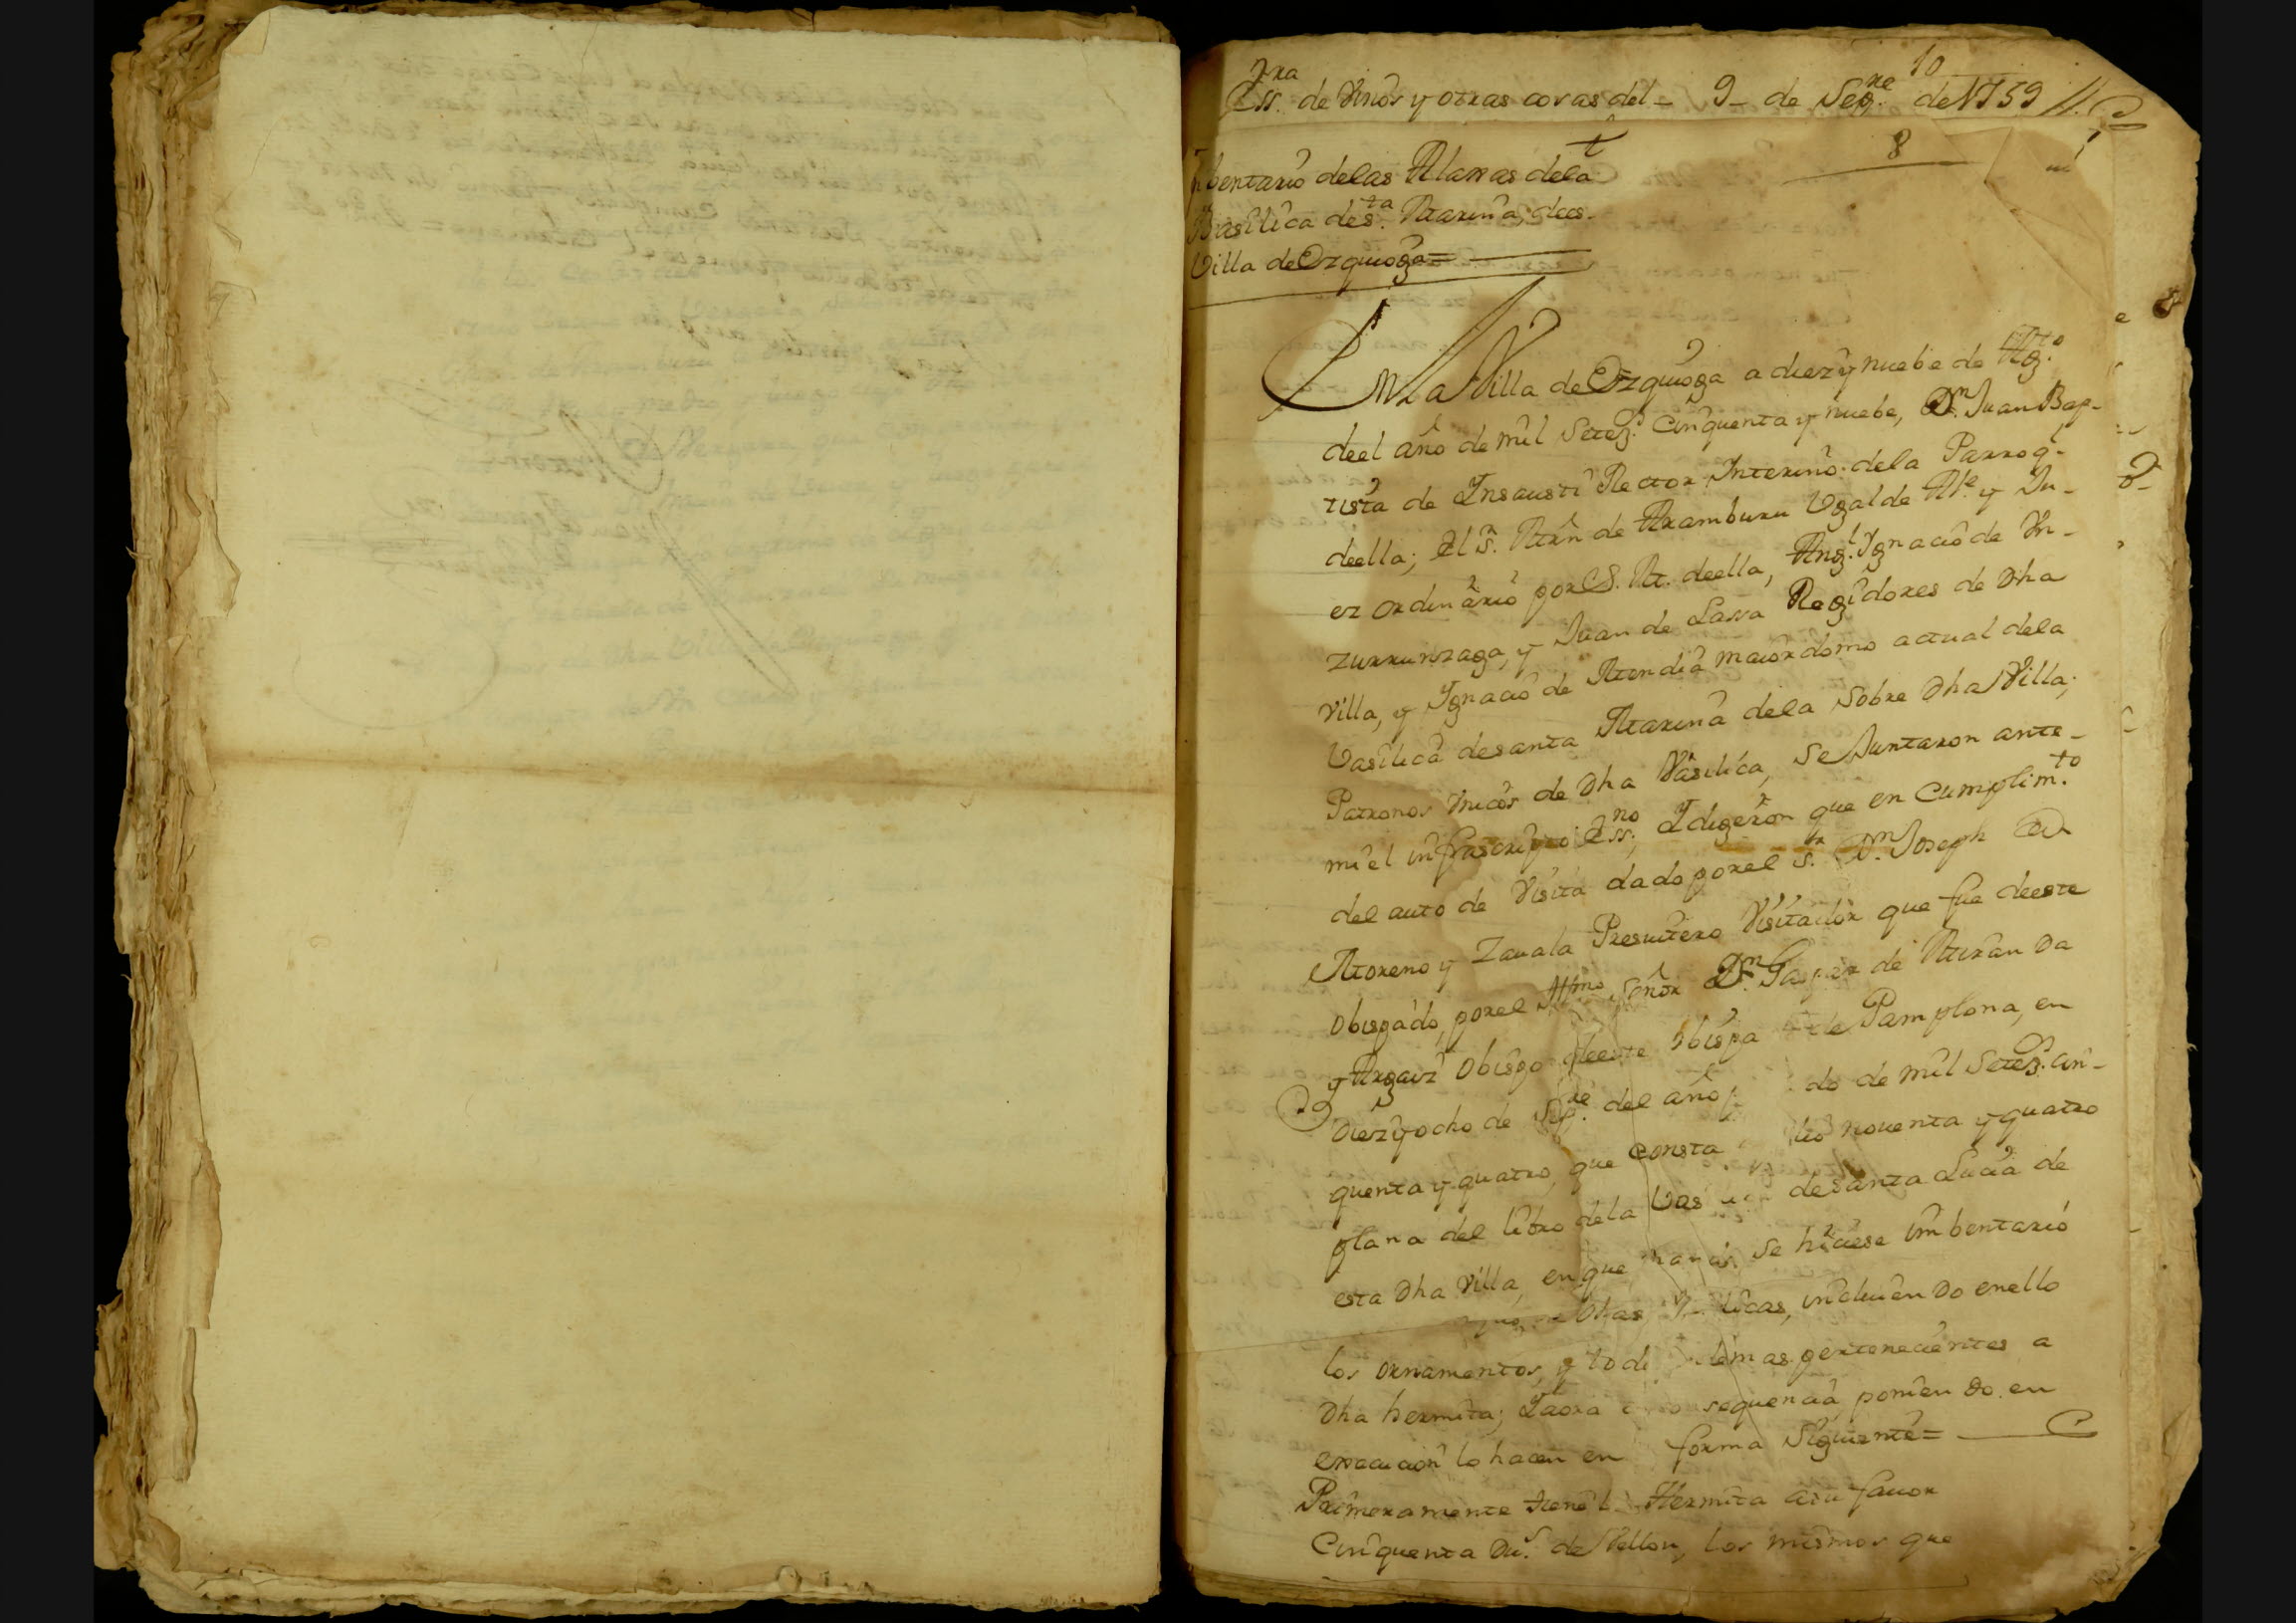 10
Ess.ra de Vinos y otras cosas del - 9 - de Sep.re de 1759 //.
8
Inbentario delas Alaxas dela
Basilica de S.ta Marina, dees-
Villa de Ozquioga =
En La Villa de Ozquioga a diez y nuebe de Ag.to
deel año de mil Setez.s cinquenta y nuebe, D.n Juan Bap-
tista de Insausti Rector Interino dela Parroq.
deella; el S.r Mrn de Aramburu Ugalde Al.e y Ju-
ez ordinario por S. M. deella, Ang.l Ignacio de Yn-
zurrunzaga, y Juan de Lasa Regidores de Dha
Villa, y Ignacio de Mendia maiordomo actual dela
Vasilica desanta Marina dela Sobre Dha Villa;
Patronos Unicos de Dha Vasilica, se Juntaron ante-
mi el infrascripto Ess.no, Y digeron que en Cumplim.to
del auto de Visita dado porel S.r D.n Joseph
Moreno y Zauala Presuitero Visitador que fue deeste
Obispado, porel Illmo Señor D.n Gaspar de Miranda
y Argaiz Obispo deeste Obispa de Pamplona, en
Diez y ocho de Sep.re del año do de mil Setez.s cin-
quenta y quatro, que consta nouenta y quatro
plana del libro dela Vas desanta Lucia de
esta Dha Villa, en que se hiciese Imbentario
Dhas licas, incluiendo enello
los ornamentos, y todo demas pertenecientes a
Dha hermita; Y aora consequencia, poniendo en
execucion lo hacen en forma Siguiente =
Primeramente tiene Hermita asu fauor
Cinquenta Du.s de Vellon, los mismos que